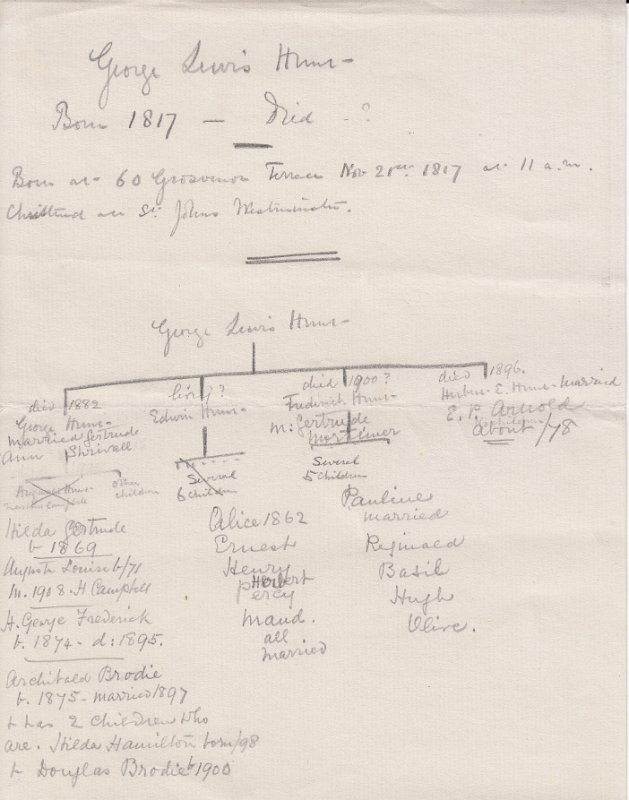 George Lewis Hunt
Born 1817 — Died - ?
Born at 60 Grosvenor Terrace Nov 21st 1817 at 11 a.m.
Christend at St Johns Westminster.
George Lewis Hunt
died 1882
George Hunt
married Gertrude
Ann Shrivell
other
children
Hilda Gertrude
b 1869
Augusta Louise b/71
m. 1908. H Campbell
H. George Frederick
b. 1874 - d: 1895.
Archibald Brodie
b. 1875 - married 1897
+ has 2 children who
are. Hilda Hamilton born/98
+ Douglas Brodie b 1900
living?
Edwin Hunt
Several
6 children
Alice 1862
Ernest
Henry
Herbert
Percy
Maud.
all
married
died 1900?
Frederick Hunt
m: Gertrude
Mortimer
Several
5 children
Pauline
married
Reginald
Basil
Hugh
Olive.
died 1896.
E. Hunt married
E. P. Arnold
about /78